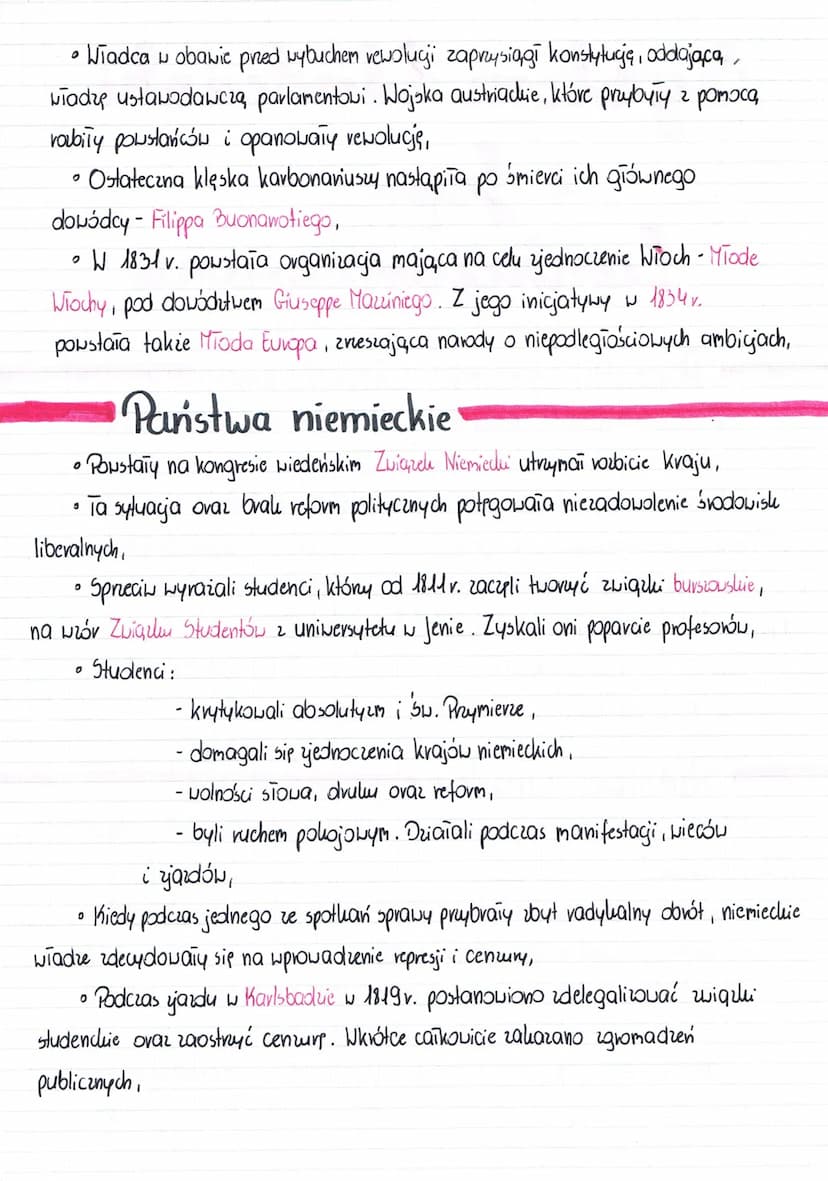 • Władca w obawie przed wybuchem rewolucji zaprzysiągł konstytucję, oddającą,
władzę ustawodawczą parlamentowi. Wojska austriackie, które przybyły z pomocą
rozbiły powstańców i opanowały rewolucję,
• Ostateczna klęska karbonariuszy nastąpiła po śmierci ich głównego
dowódcy - Filippa Buonarrotiego,
• W 1831 r. powstała organizacja mająca na celu zjednoczenie Włoch - Młode
Włochy, pod dowództwem Giuseppe Mazziniego. Z jego inicjatywy w 1834 r.
powstała także Młoda Europa, zrzeszająca narody o niepodległościowych ambicjach,
Państwa niemieckie
• Powstały na kongresie wiedeńskim Związek Niemiecki utrzymał rozbicie kraju,
• Ta sytuacja oraz brak reform politycznych potęgowała niezadowolenie środowisk
liberalnych,
• Sprzeciw wyrażali studenci, którzy od 1811 r. zaczęli tworzyć związki burszowskie,
na wzór Związku Studentów z uniwersytetu w Jenie. Zyskali oni poparcie profesorów,
• Studenci:
- krytykowali absolutyzm i Św. Przymierze,
- domagali się zjednoczenia krajów niemieckich,
- wolności słowa, druku oraz reform,
- byli ruchem pokojowym. Działali podczas manifestacji, wieców
i zjazdów,
• Kiedy podczas jednego ze spotkań sprawy przybrały zbyt radykalny obrót, niemieckie
władze zdecydowały się na wprowadzenie represji i cenzury,
• Podczas zjazdu w Karlsbadzie w 1819 r. postanowiono zdelegalizować związki
studenckie oraz zaostrzyć cenzurę. Wkrótce całkowicie zakazano zgromadzeń
publicznych,